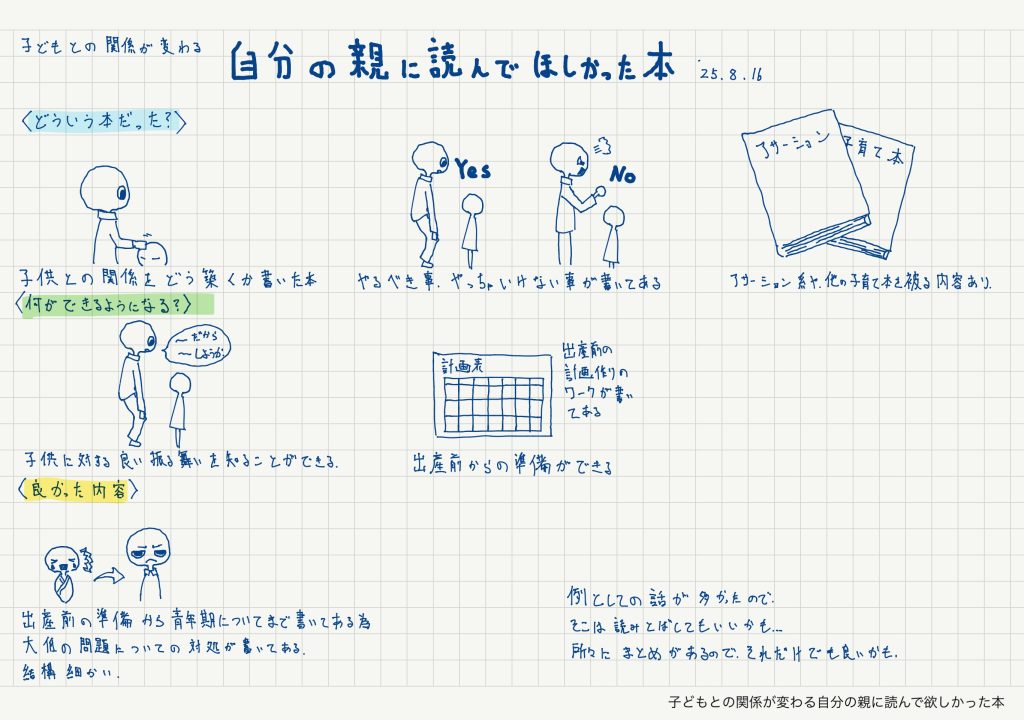 子どもとの関係が変わる
自分の親に読んでほしかった本 '25.8.16
〈どういう本だった?〉
Yes
No
アサーション
子育て本
子供との関係をどう築くか書いた本
やるべき事、やっちゃいけない事が書いてある
アサーション系や、他の子育て本と被る内容あり。
〈何ができるようになる?〉
〜だから
〜しようか。
計画表
出産前の
計画作りの
ワークが書い
てある
子供に対する良い振る舞いを知ることができる。
出産前からの準備ができる
〈良かった内容〉
出産前の準備から青年期についてまで書いてある為
大低の問題についての対処が書いてある。
結構細かい。
例としての話が多かったので、
そこは読みとばしてもいいかも...
所々にまとめがあるので、それだけでも良いかも。
子どもとの関係が変わる自分の親に読んで欲しかった本